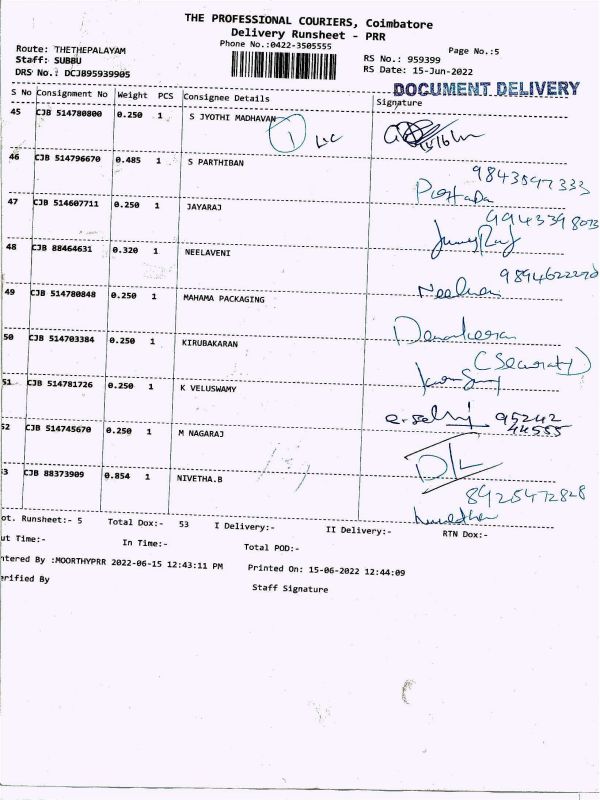 THE PROFESSIONAL COURIERS, Coimbatore
Delivery Runsheet - PRR
Phone No.:0422-3505555
Page No.:5
Route: THETHEPALAYAM
Staff: SUBBU
DRS No.: DCJB95939905
RS No.: 959399
RS Date: 15-Jun-2022
DOCUMENT DELIVERY
S No Consignment No Weight PCS Consignee Details Signature
45 CJB 514780800 0.250 1 S JYOTHI MADHAVAN
46 CJB 514796670 0.485 1 S PARTHIBAN
9843547333
47 CJB 514607711 0.250 1 JAYARAJ
9943398073
48 CJB 88464631 0.320 1 NEELAVENI
9894622270
49 CJB 514780848 0.250 1 MAHAMA PACKAGING
50 CJB 514703384 0.250 1 KIRUBAKARAN
(Security)
51 CJB 514781726 0.250 1 K VELUSWAMY
95242
44555
52 CJB 514745670 0.250 1 M NAGARAJ
D/L
3 CJB 88373909 0.854 1 NIVETHA.B
8925472828
ot. Runsheet:- 5 Total Dox:- 53 I Delivery:- II Delivery:- RTN Dox:-
ut Time:- In Time:- Total POD:-
ntered By :MOORTHYPRR 2022-06-15 12:43:11 PM Printed On: 15-06-2022 12:44:09
erified By Staff Signature